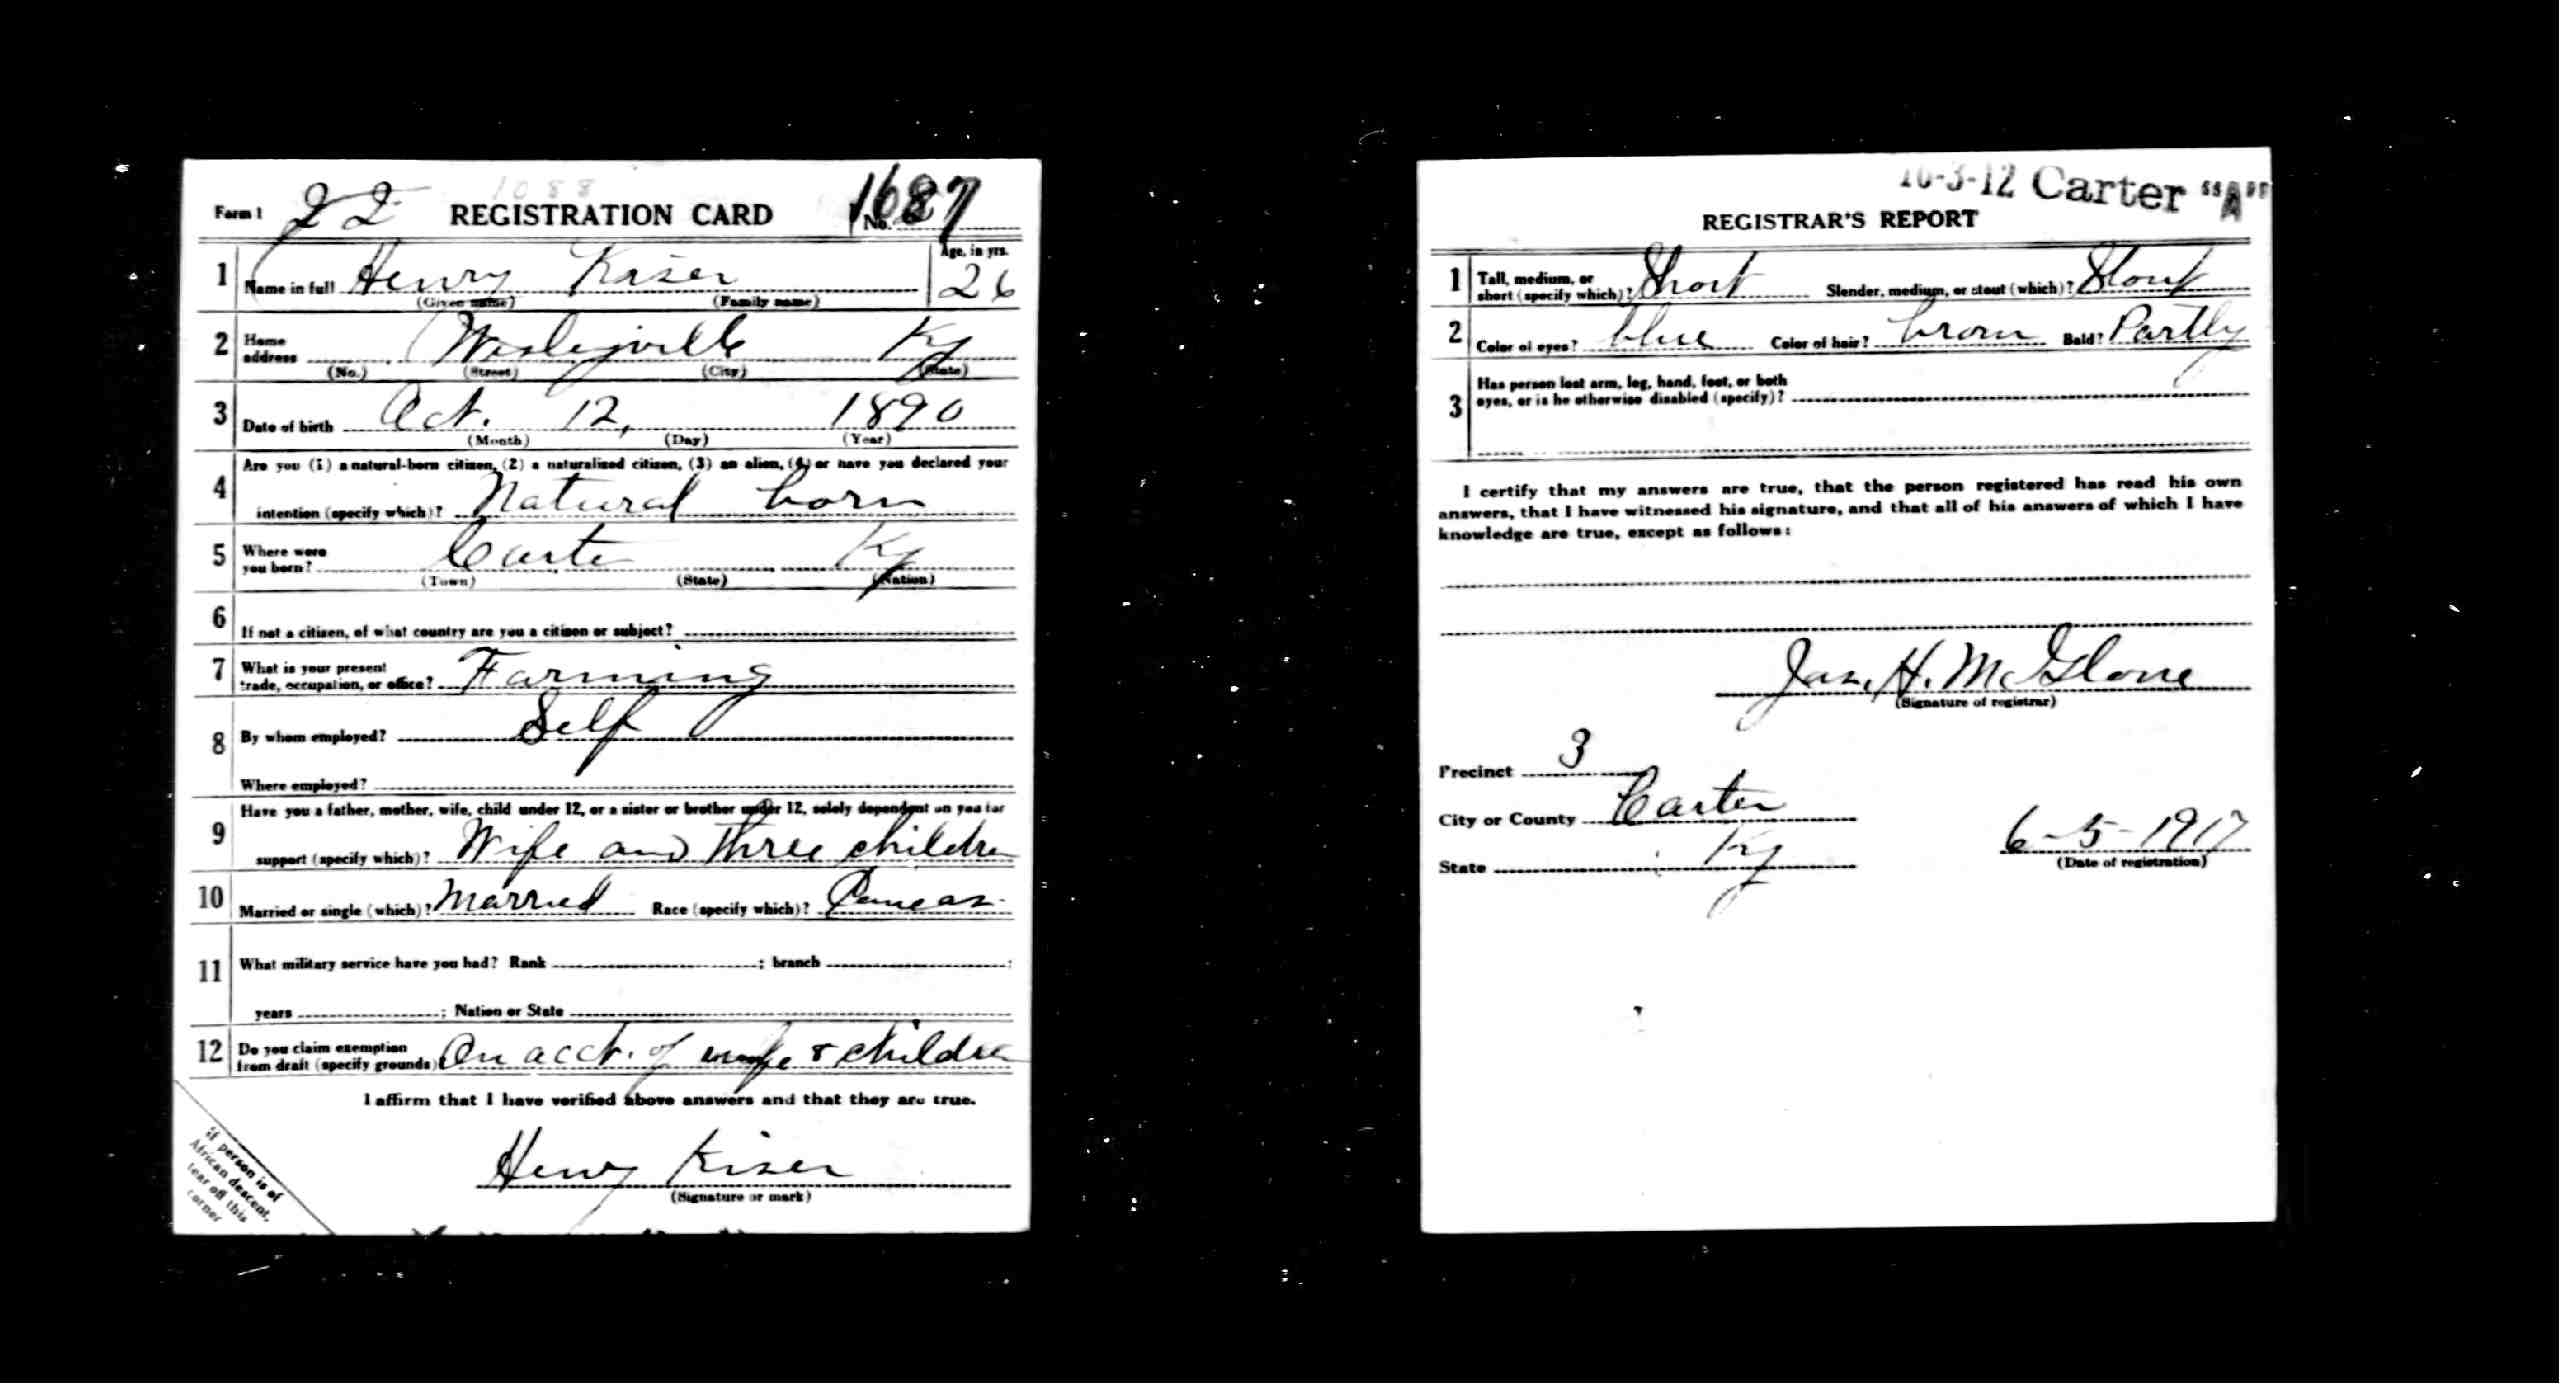 Form 1 22 REGISTRATION CARD No. 1687
1088
1 Name in full Henry Kiser Age, in yrs. 26
(Given name) (Family name)
2 Home address Wesleyville Ky
(No.) (Street) (City) (State)
3 Date of birth Oct. 12, 1890
(Month) (Day) (Year)
4 Are you (1) a natural-born citizen, (2) a naturalized citizen, (3) an alien, (4) or have you declared your
intention (specify which)? Natural born
5 Where were you born? Carter Ky
(Town) (State) (Nation)
6 If not a citizen, of what country are you a citizen or subject?
7 What is your present trade, occupation, or office? Farming
8 By whom employed? Self
Where employed?
9 Have you a father, mother, wife, child under 12, or a sister or brother under 12, solely dependent on you for
support (specify which)? Wife and three children
10 Married or single (which)? Married Race (specify which)? Caucas.
11 What military service have you had? Rank ; branch ;
years ; Nation or State
12 Do you claim exemption from draft (specify grounds)? On acct. of wife & children
I affirm that I have verified above answers and that they are true.
Henry Kiser
(Signature or mark)
If person is of
African descent,
tear off this
corner
10-3-12 Carter "A"
REGISTRAR'S REPORT
1 Tall, medium, or short (specify which)? Short Slender, medium, or stout (which)? Stout
2 Color of eyes? blue Color of hair? brown Bald? Partly
3 Has person lost arm, leg, hand, foot, or both
eyes, or is he otherwise disabled (specify)?
I certify that my answers are true, that the person registered has read his own
answers, that I have witnessed his signature, and that all of his answers of which I have
knowledge are true, except as follows:
Jas. H. McGlone
(Signature of registrar)
Precinct 3
City or County Carter
State Ky 6-5-1917
(Date of registration)